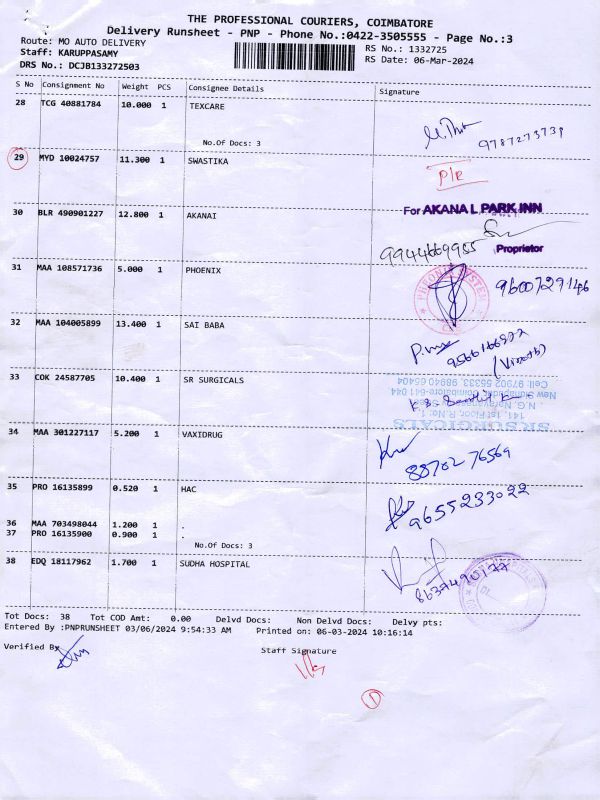 THE PROFESSIONAL COURIERS, COIMBATORE
Delivery Runsheet - PNP - Phone No.:0422-3505555 - Page No.:3
Route: MO AUTO DELIVERY RS No.: 1332725
Staff: KARUPPASAMY RS Date: 06-Mar-2024
DRS No.: DCJB133272503
S No Consignment No Weight PCS Consignee Details Signature
28 TCG 40881784 10.000 1 TEXCARE
No.Of Docs: 3
29 MYD 10024757 11.300 1 SWASTIKA
P/R
For AKANA L PARK INN
30 BLR 490901227 12.800 1 AKANAI
9944669955 Proprietor
31 MAA 108571736 5.000 1 PHOENIX
9600729146
32 MAA 104005899 13.400 1 SAI BABA
33 COK 24587705 10.400 1 SR SURGICALS
SR SURGICALS
141, 1st Floor, R. No: 1,
New Siddhapudur, Coimbatore-641 044
Cell: 97902 55333, 98940 65404
34 MAA 301227117 5.200 1 VAXIDRUG
88702 76569
35 PRO 16135899 0.520 1 HAC
9655233022
36 MAA 703498044 1.200 1 .
37 PRO 16135900 0.900 1 .
No.Of Docs: 3
38 EDQ 18117962 1.700 1 SUDHA HOSPITAL
8637490177
Tot Docs: 38 Tot COD Amt: 0.00 Delvd Docs: Non Delvd Docs: Delvy pts:
Entered By :PNPRUNSHEET 03/06/2024 9:54:33 AM Printed on: 06-03-2024 10:16:14
Verified By Staff Signature
1